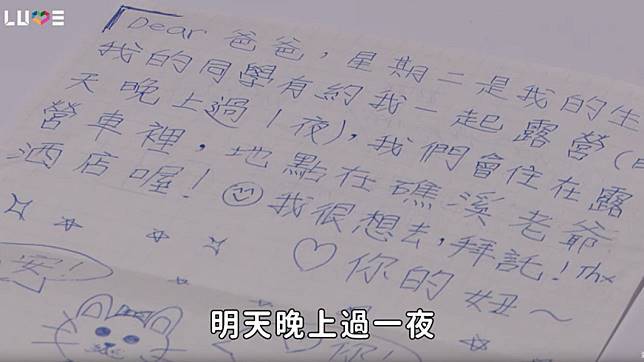 LUVE
Dear 爸爸，星期二是我的生
我的同學有約我一起露營(明
天晚上過1夜)，我們會住在露
營車裡，地點在礁溪老爺
酒店喔！我很想去，拜託！Thx
♡你的妞～
安！
你！
明天晚上過一夜